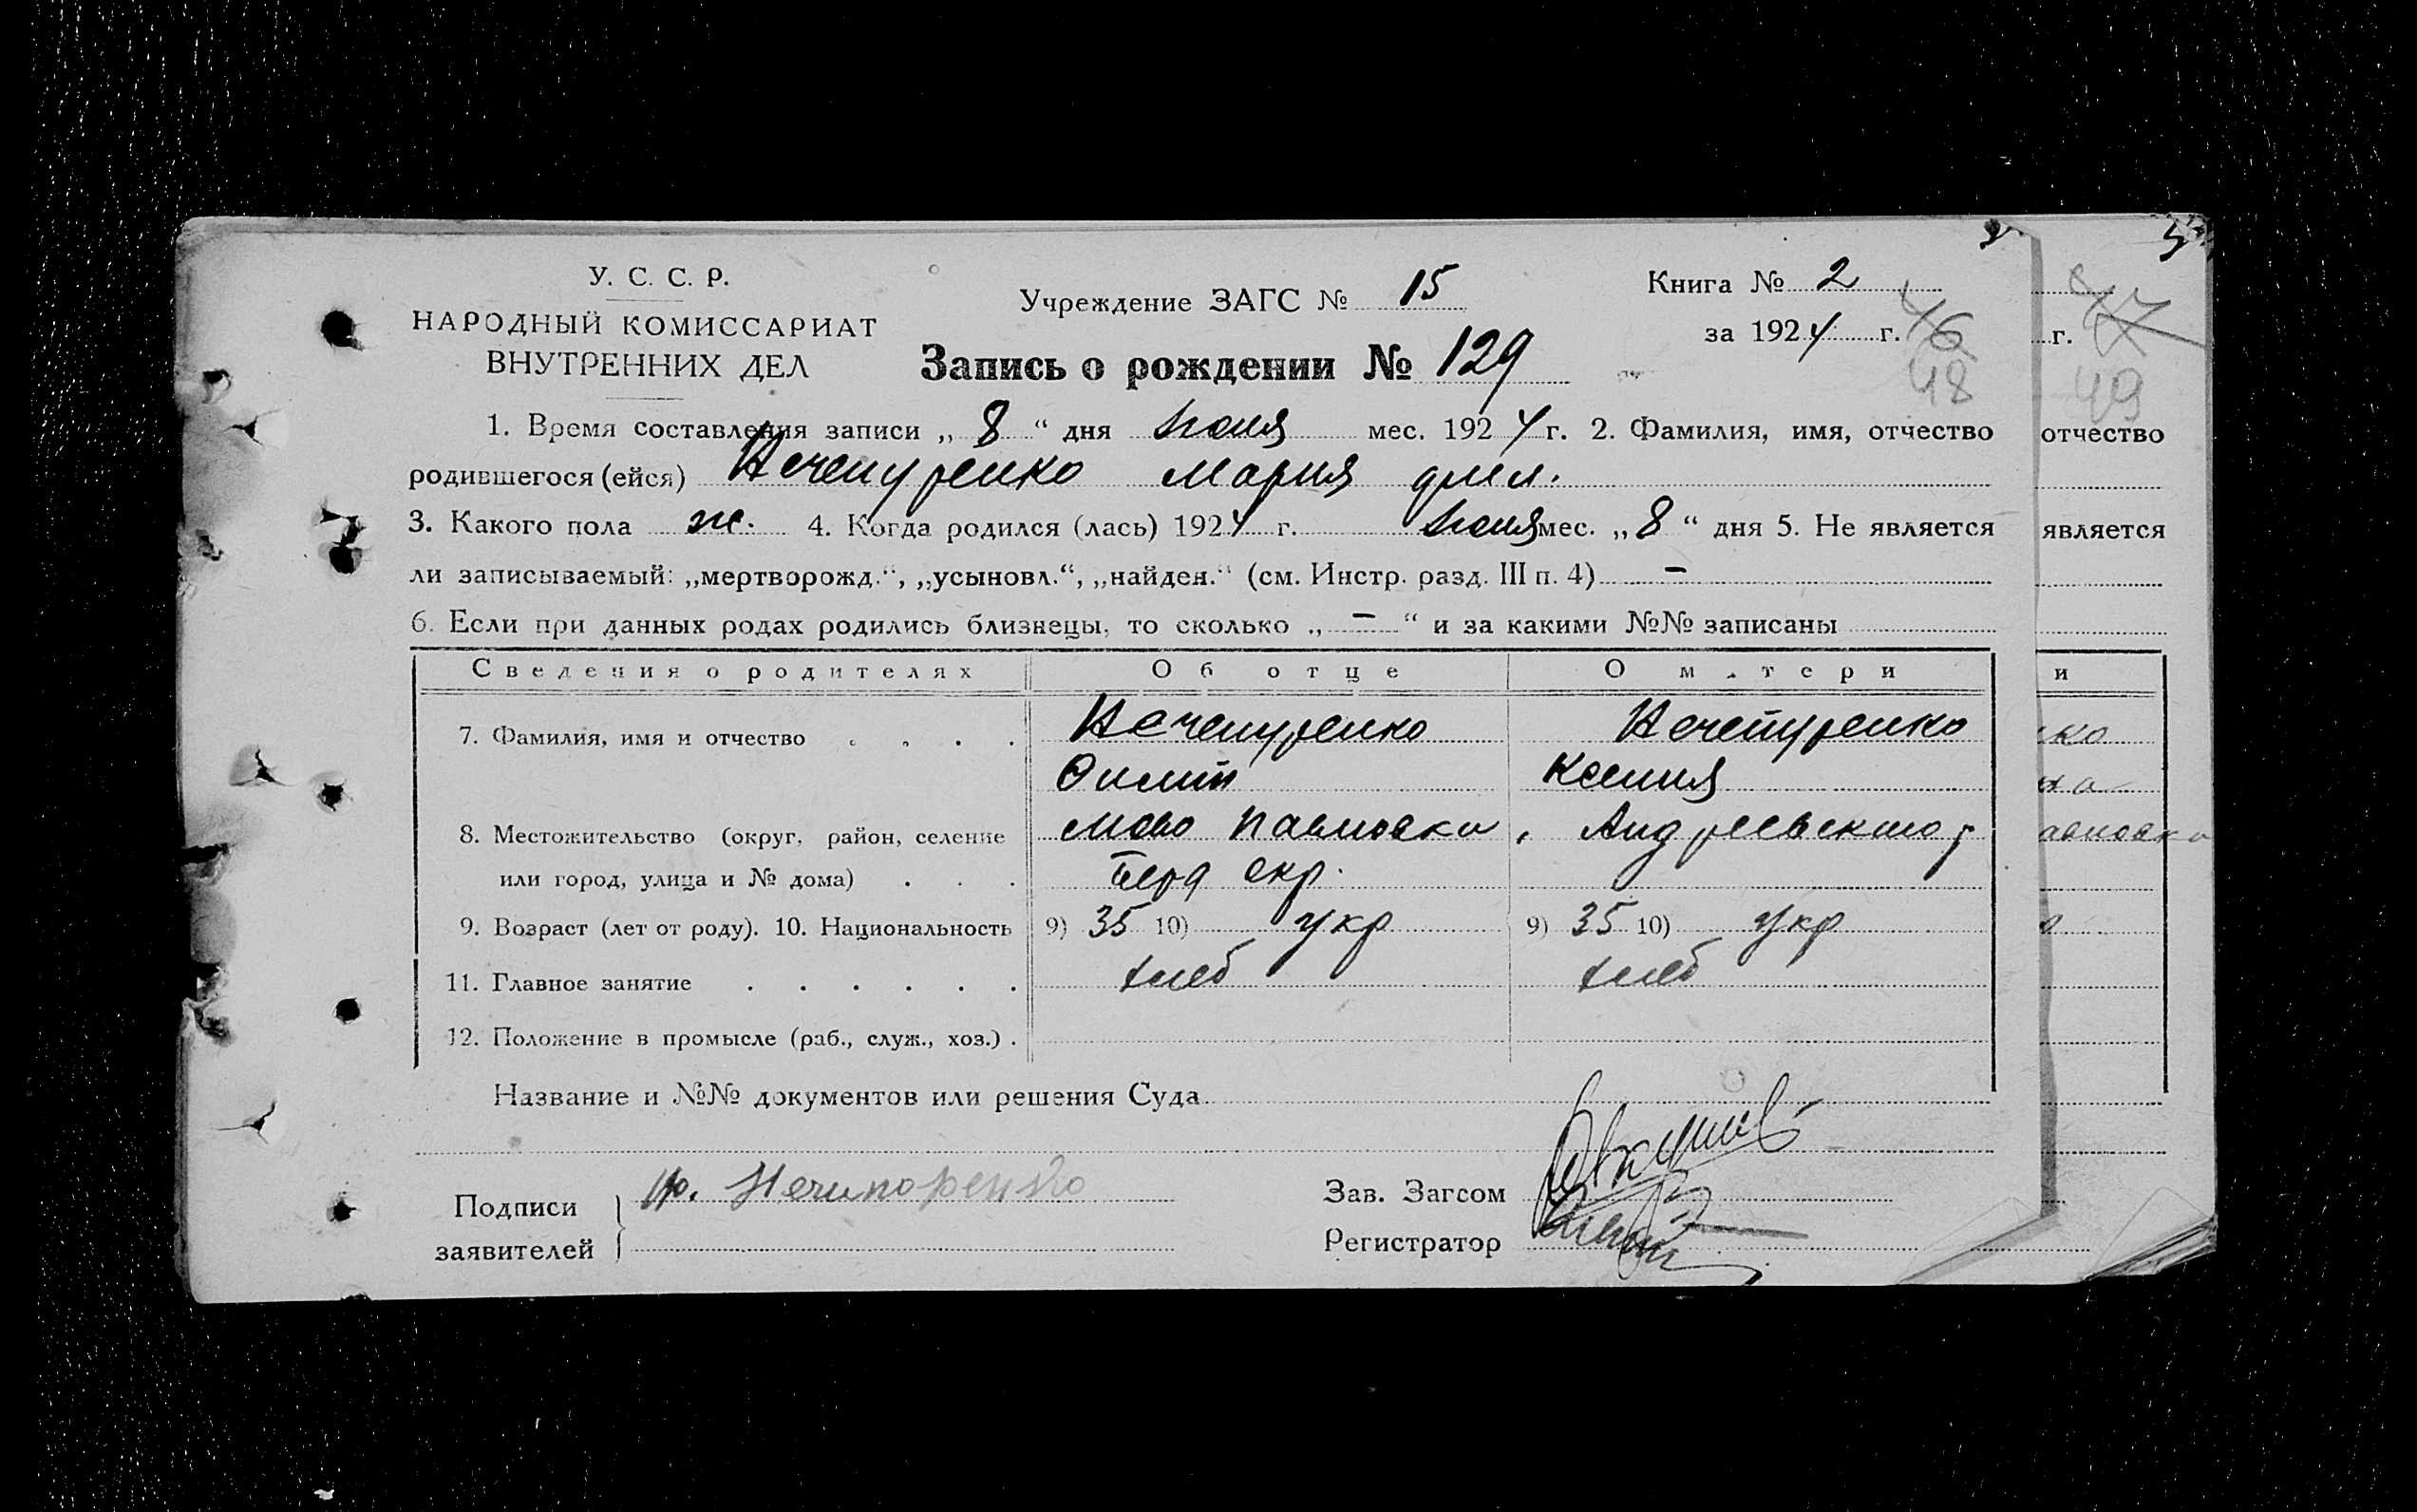 У. С. С. Р.
НАРОДНЫЙ КОМИССАРИАТ
ВНУТРЕННИХ ДЕЛ
Учреждение ЗАГС № 15
Книга № 2
за 1924 г. 46
48
г. 47
49
Запись о рождении № 129
1. Время составления записи „ 8 “ дня июля мес. 1924 г. 2. Фамилия, имя, отчество
отчество
родившегося (ейся) Нечепуренко Мария
3. Какого пола ж. 4. Когда родился (лась) 1924 г. июля мес. „ 8 “ дня 5. Не является
является
ли записываемый: „мертворожд.“, „усыновл.“, „найден.“ (см. Инстр. разд. III п. 4) –
6. Если при данных родах родились близнецы, то сколько „ – “ и за какими №№ записаны
Сведения о родителях Об отце О м.тери
и
7. Фамилия, имя и отчество . . . . Нечепуренко Нечепуренко
ко
Ксения
на
8. Местожительство (округ, район, селение Ново Павловка, Андреевского р
авловка
или город, улица и № дома) . . . Берд окр.
9. Возраст (лет от роду). 10. Национальность 9) 35 10) укр 9) 35 10) укр
11. Главное занятие . . . . . . хлеб хлеб
12. Положение в промысле (раб., служ., хоз.) .
Название и №№ документов или решения Суда
Подписи
заявителей
Нечипоренко
Зав. Загсом
Регистратор